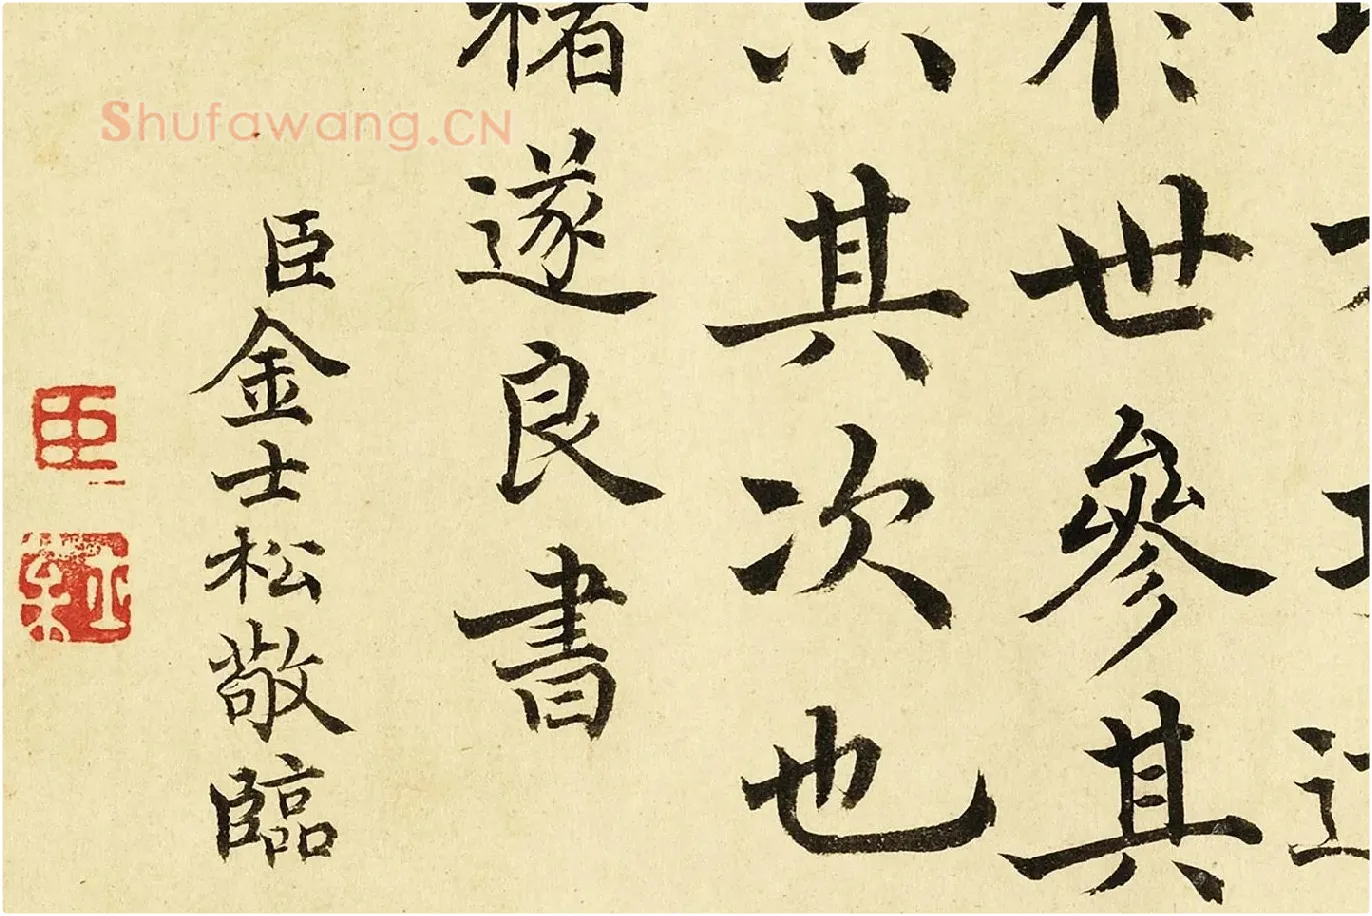 於世參其
其次也
褚遂良書
臣金士松敬臨
臣
Shufawang.CN